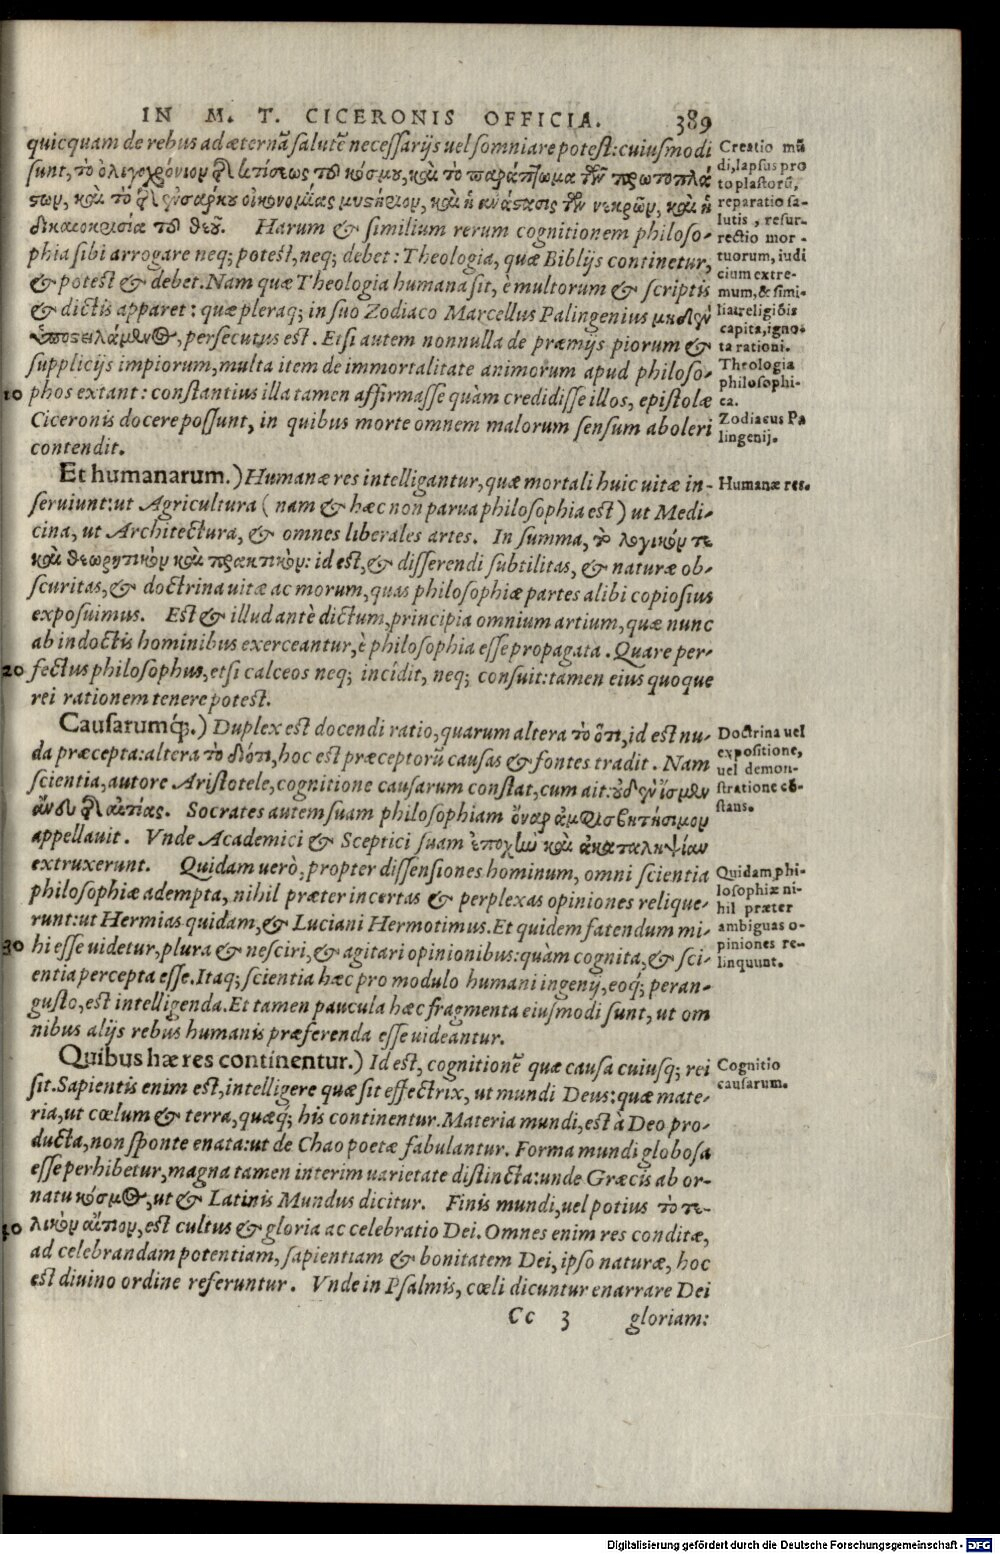 IN M. T. CICERONIS OFFICIA. 389
quicquam de rebus ad æternā salutē necessarijs uel somniare potest: cuiusmodi
sunt, τὸ ὀλιγοχρόνιον τῆς κτίσεως τοῦ κόσμου, καὶ τὸ παράπτωμα τῶν πρωτοπλά
στων, καὶ τὸ τῆς ἐνσάρκου οἰκονομίας μυστήριον, καὶ ἡ ἀνάστασις τῶν νεκρῶν, καὶ ἡ
δικαιοκρισία τοῦ θεοῦ. Harum & similium rerum cognitionem philoso-
phia sibi arrogare neq; potest, neq; debet: Theologia, quæ Biblijs continetur,
& potest & debet. Nam quæ Theologia humana sit, è multorum & scriptis
& dictis apparet: quæ pleraq; in suo Zodiaco Marcellus Palingenius μηδὲν
ὑποστειλάμενος, persecutus est. Etsi autem nonnulla de præmijs piorum &
supplicijs impiorum, multa item de immortalitate animorum apud philoso-
10 phos extant: constantius illa tamen affirmasse quàm credidisse illos, epistolæ
Ciceronis docere possunt, in quibus morte omnem malorum sensum aboleri
contendit.
Et humanarum.) Humanæ res intelligantur, quæ mortali huic uitæ in-
seruiunt: ut Agricultura (nam & hæc non parua philosophia est) ut Medi-
cina, ut Architectura, & omnes liberales artes. In summa, τὸ λογικόν τε
καὶ θεωρητικὸν καὶ πρακτικὸν: id est, & disserendi subtilitas, & naturæ ob-
scuritas, & doctrina uitæ ac morum, quas philosophiæ partes alibi copiosius
exposuimus. Est & illud antè dictum, principia omnium artium, quæ nunc
ab indoctis hominibus exerceantur, è philosophia esse propagata. Quare per-
20 fectus philosophus, etsi calceos neq; incidit, neq; consuit: tamen eius quoque
rei rationem tenere potest.
Causarumq́;.) Duplex est docendi ratio, quarum altera τὸ ὅτι, id est nu-
da præcepta: altera τὸ διότι, hoc est præceptorū causas & fontes tradit. Nam
scientia, autore Aristotele, cognitione causarum constat, cum ait: οὐδὲν ἴσμεν
ἄνευ τῆς αἰτίας. Socrates autem suam philosophiam ὄναρ ἀμφισβητήσιμον
appellauit. Vnde Academici & Sceptici suam ἐποχὴν καὶ ἀκαταληψίαν
extruxerunt. Quidam uerò, propter dissensiones hominum, omni scientia
philosophiæ adempta, nihil præter incertas & perplexas opiniones relique-
runt: ut Hermias quidam, & Luciani Hermotimus. Et quidem fatendum mi-
30 hi esse uidetur, plura & nesciri, & agitari opinionibus: quàm cognita, & sci-
entia percepta esse. Itaq; scientia hæc pro modulo humani ingenij, eoq́; peran-
gusto, est intelligenda. Et tamen paucula hæc fragmenta eiusmodi sunt, ut om
nibus alijs rebus humanis præferenda esse uideantur.
Quibus hæ res continentur.) Id est, cognitionē quæ causa cuiusq; rei
sit. Sapientis enim est, intelligere quæ sit effectrix, ut mundi Deus: quæ mate-
ria, ut cœlum & terra, quæq́; his continentur. Materia mundi, est à Deo pro-
ducta, non sponte enata: ut de Chao poetæ fabulantur. Forma mundi globosa
esse perhibetur, magna tamen interim uarietate distincta: unde Græcis ab or-
natu κόσμος, ut & Latinis Mundus dicitur. Finis mundi, uel potius τὸ τε-
40 λικὸν αἴτιον, est cultus & gloria ac celebratio Dei. Omnes enim res conditæ,
ad celebrandam potentiam, sapientiam & bonitatem Dei, ipso naturæ, hoc
est diuino ordine referuntur. Vnde in Psalmis, cœli dicuntur enarrare Dei
Cc 3 gloriam:
Creatio mū
di, lapsus pro
toplastorū,
reparatio sa-
lutis, resur-
rectio mor-
tuorum, iudi
cium extre-
mum, & simi-
lia religiōis
capita, igno-
ta rationi.
Theologia
philosophi-
ca.
Zodiacus Pa
lingenij.
Humanæ res.
Doctrina uel
expositione,
uel demon-
stratione cō-
stans.
Quidam phi-
losophiæ ni-
hil præter
ambiguas o-
piniones re-
linquunt.
Cognitio
causarum.
Digitalisierung gefördert durch die Deutsche Forschungsgemeinschaft - DFG